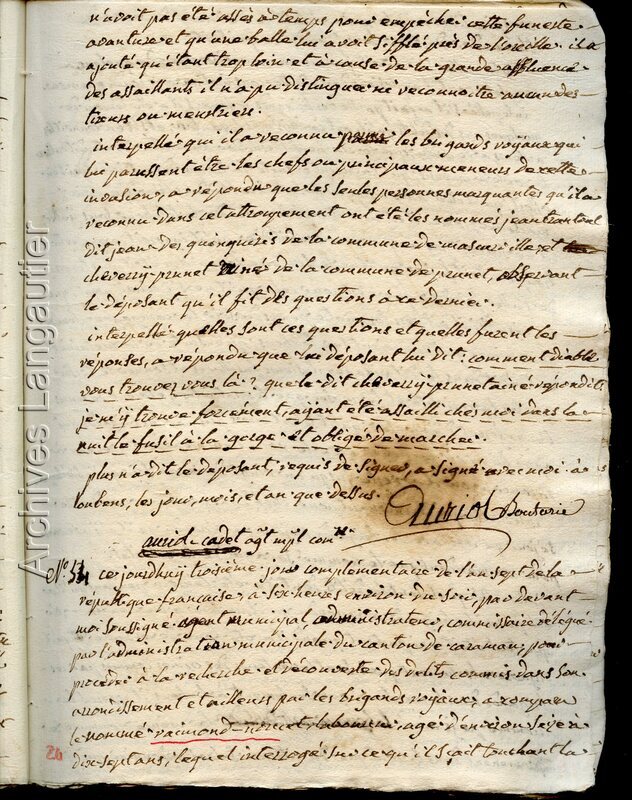 n'avoit pas été assés à temps pour empêcher cette funeste
avanture et qu'une balle lui avoit sifflé près de l'oreille. il a
ajouté qu'étant trop loin et à cause de la grande affluence
des assaillants il n'a pu distinguer ni reconnoitre aucun des
tireurs ou meurtriers.
interpellé qui il a reconnu parmi les brigands royaux qui
lui parussent être les chefs ou principaux meneurs de cette
invasion, a répondu que les seules personnes marquantes qu'il a
reconnu dans cet attroupement ont été les nommés jean trantoul
dit jean des quinquiris de la commune de mascarville, et
cheverry-prunet ainé de la commune de prunet, observant
le déposant qu'il fit des questions à ce dernier.
interpellé quelles sont ces questions et quelles furent les
réponses, a répondu que lui déposant lui dit: comment diable
vous trouvez vous là? que le dit cheverry-prunet ainé répondit
je m'y trouve forcément, ayant été assailli chés moi dans la
nuit le fusil à la gorge et obligé de marcher.
plus n'a dit le déposant; requis de signer, a signé avec moi à
loubens, les jour, mois, et an que dessus.
auriol Bouserie
auriol-cadet agt mpl comre
N°. 54 ce jourdhuy troisième jour complémentaire de l'an sept de la
république française, à six heures environ du soir, par devant
moi soussigné agent municipal, administrateur, commissaire délégué
par l'administration municipale du canton de caraman, pour
procéder à la recherche et découverte des délits commis dans son
arrondissement et ailleurs par les brigands royaux, a comparu
le nommé raimond agé d'environ seize à
dix sept ans, lequel interrogé sur ce qu'il sçait touchant la
26
Archives Langautier